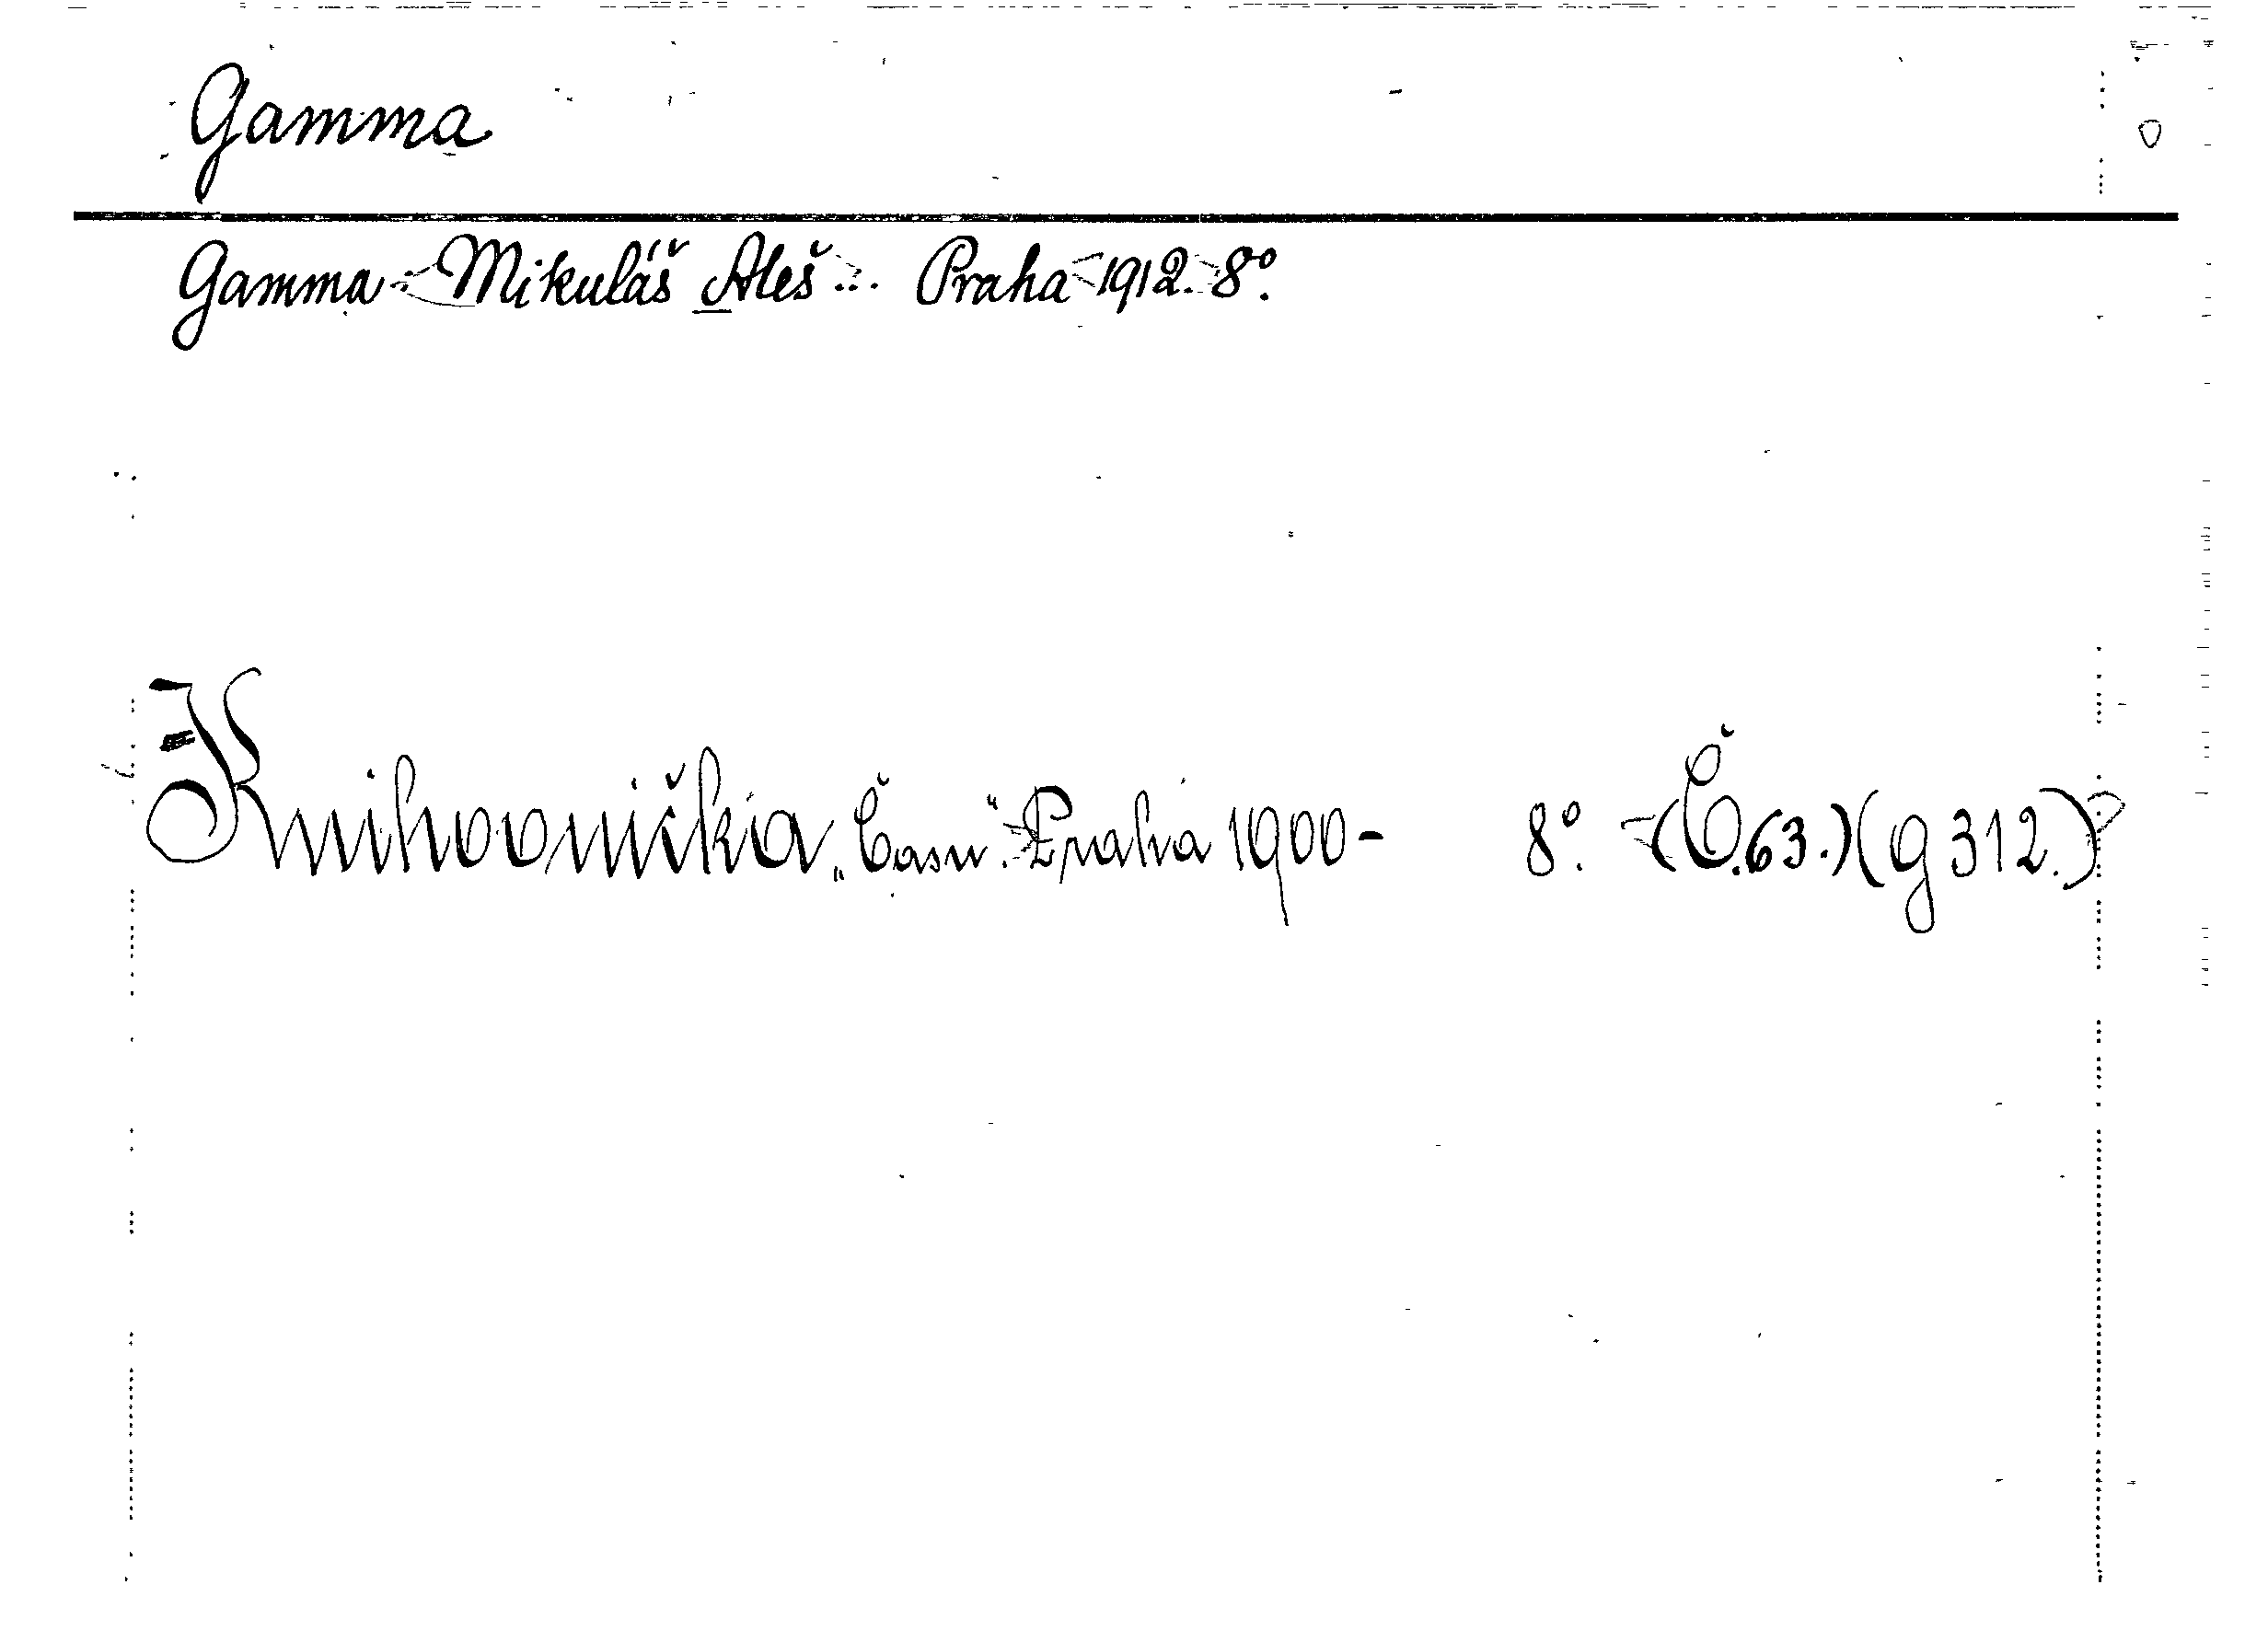 Gamma
Gamma: Mikuláš Aleš... Praha 1912. 8°.
Knihovnička „Času“. Praha 1900- 8°. (Č.63.)(g 312.)